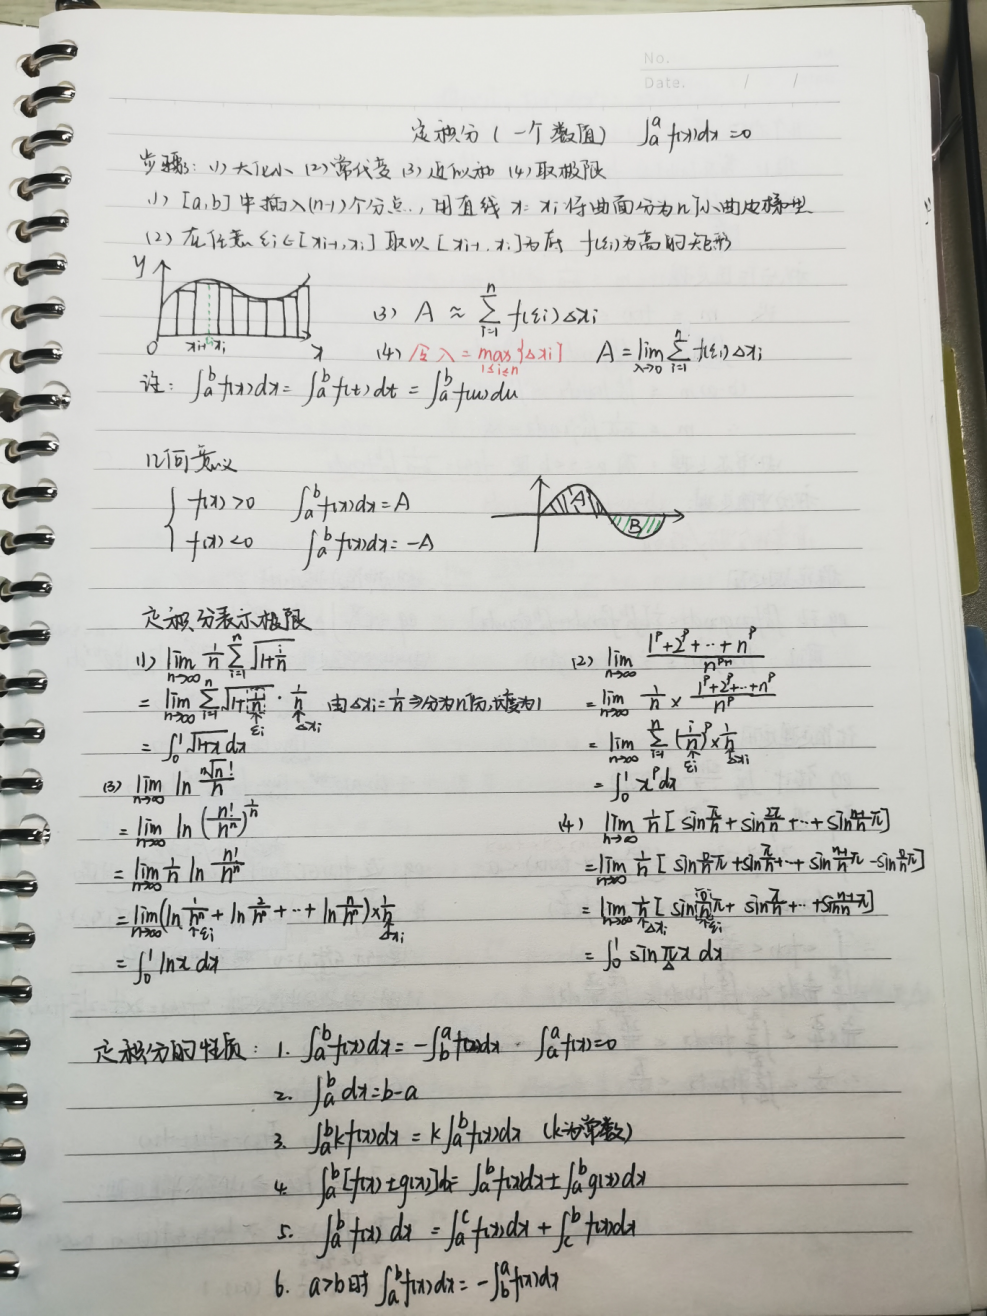 No.
Date. / /
定积分(一个数值) ∫ₐᵃ f(x)dx=0
步骤: (1) 大化小 (2) 常代变 (3) 近似和 (4) 取极限
(1) [a,b] 中插入(n-1)个分点.., 用直线 x=xi 将曲面分为n个小曲边梯型
(2) 在任意 εi∈[xi-1,xi] 取以 [xi-1,xi]为底 f(εi)为高的矩形
y
0 xi-1 xi x
(3) A ≈ Σ(i=1→n) f(εi)Δxi
(4) 令λ=max{Δxi} 1≤i≤n A=lim(λ→0) Σ(i=1→n) f(εi)Δxi
注: ∫ₐᵇ f(x)dx=∫ₐᵇ f(t)dt=∫ₐᵇ f(u)du
几何意义
f(x)>0 ∫ₐᵇ f(x)dx=A
f(x)<0 ∫ₐᵇ f(x)dx=-A
A
B
定积分表示极限
(1) lim(n→∞) 1/n Σ(i=1→n) √(1+i/n)
= lim(n→∞) Σ(i=1→n) √(1+i/n) · 1/n 由Δxi=1/n⇒分为n份,长度为1
εi Δxi
= ∫₀¹ √(1+x) dx
(2) lim(n→∞) (1ᵖ+2ᵖ+···+nᵖ)/nᵖ⁺¹
= lim(n→∞) 1/n × (1ᵖ+2ᵖ+···+nᵖ)/nᵖ
= lim(n→∞) Σ(i=1→n) (i/n)ᵖ × 1/n
εi Δxi
= ∫₀¹ xᵖ dx
(3) lim(n→∞) ln (ⁿ√n!)/n
= lim(n→∞) ln (n!/nⁿ)^(1/n)
= lim(n→∞) 1/n ln n!/nⁿ
= lim(n→∞) (ln 1/nⁿ + ln 2/nⁿ +···+ ln n/nⁿ)×1/n
εi Δxi
= ∫₀¹ lnx dx
(4) lim(n→∞) 1/n [ sin π/n + sin 2π/n +···+ sin (n-1)/n π]
= lim(n→∞) 1/n [ sin 0/n π + sin π/n +···+ sin (n-1)/n π - sin 0/n π]
= lim(n→∞) 1/n [ sin 0/n π + sin π/n +···+ sin (n-1)/n π]
Δxi εi
= ∫₀¹ sin πx dx
定积分的性质: 1. ∫ₐᵇ f(x)dx=-∫_b^a f(x)dx · ∫ₐᵃ f(x)=0
2. ∫ₐᵇ dx=b-a
3. ∫ₐᵇ kf(x)dx = k∫ₐᵇ f(x)dx (k为常数)
4. ∫ₐᵇ[f(x)±g(x)]dx= ∫ₐᵇ f(x)dx±∫ₐᵇ g(x)dx
5. ∫ₐᵇ f(x) dx = ∫_a^c f(x)dx + ∫_c^b f(x)dx
6. a>b时 ∫ₐᵇ f(x)dx=-∫_b^a f(x)dx